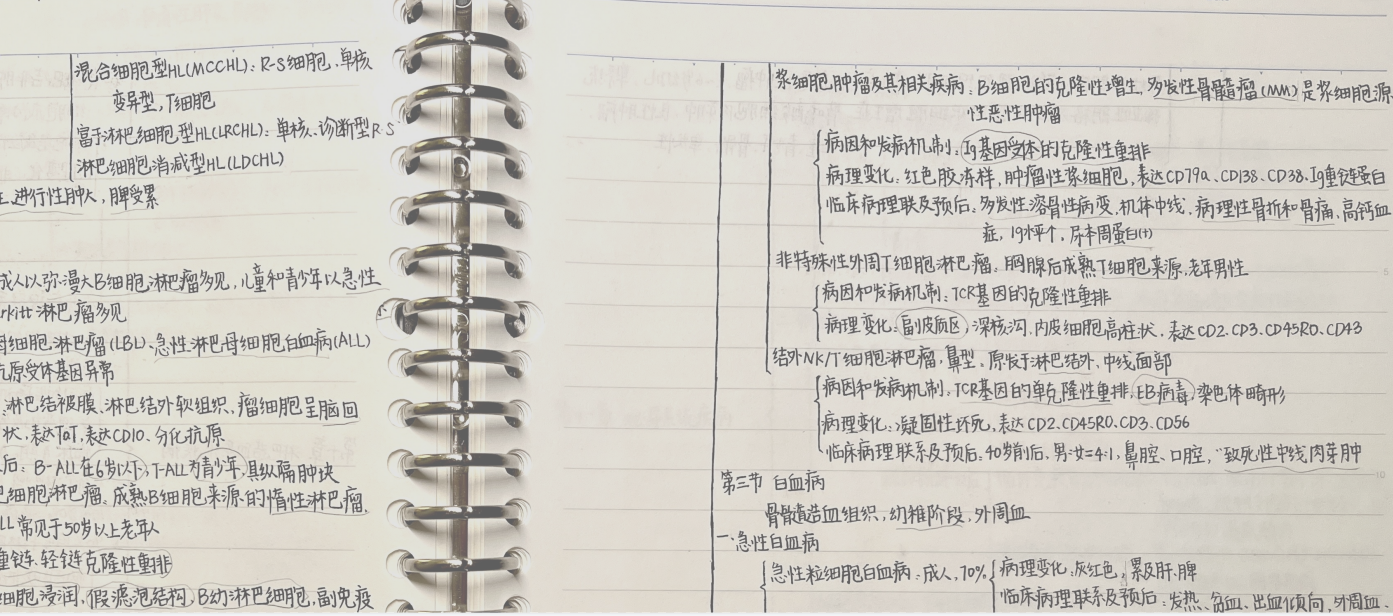 混合细胞型HL(MCCHL)：R-S细胞、单核
变异型，T细胞
富于淋巴细胞型HL(LRCHL)：单核、诊断型R-S
淋巴细胞消减型HL(LDCHL)
进行性肿大，脾受累
成人以弥漫大B细胞淋巴瘤多见，儿童和青少年以急性
rkitt淋巴瘤多见
母细胞淋巴瘤(LBL)、急性淋巴母细胞白血病(ALL)
抗原受体基因异常
淋巴结被膜、淋巴结外软组织，瘤细胞呈脑回
状，表达TdT，表达CD10、分化抗原
后：B-ALL在6岁以下，T-ALL为青少年，具纵隔肿块
细胞淋巴瘤。成熟B细胞来源的惰性淋巴瘤，
LL常见于50岁以上老年人
重链、轻链克隆性重排
细胞浸润，假滤泡结构，B幼淋巴细胞，副免疫
浆细胞肿瘤及其相关疾病：B细胞的克隆性增生，多发性骨髓瘤(MM)是浆细胞源
性恶性肿瘤
病因和发病机制：Ig基因受体的克隆性重排
病理变化：红色胶冻样，肿瘤性浆细胞，表达CD79a、CD138、CD38、Ig重链蛋白
临床病理联及预后：多发性溶骨性病变，机体中线，病理性骨折和骨痛，高钙血
症，Ig水平个，尿本周蛋白(+)
非特殊性外周T细胞淋巴瘤。胸腺后成熟T细胞来源，老年男性
病因和发病机制：TCR基因的克隆性重排
病理变化：副皮质区，深核沟，内皮细胞高柱状，表达CD2、CD3、CD45RO、CD43
结外NK/T细胞淋巴瘤，鼻型。原发于淋巴结外，中线面部
病因和发病机制：TCR基因的单克隆性重排，EB病毒，染色体畸形
病理变化：凝固性坏死，表达CD2、CD45RO、CD3、CD56
临床病理联系及预后：40岁前后，男：女=4:1，鼻腔、口腔，"致死性中线肉芽肿
第三节 白血病
骨髓造血组织，幼稚阶段，外周血
一、急性白血病
急性粒细胞白血病：成人，70% 病理变化：灰红色，累及肝、脾
临床病理联系及预后：发热、贫血、出血倾向，外周血